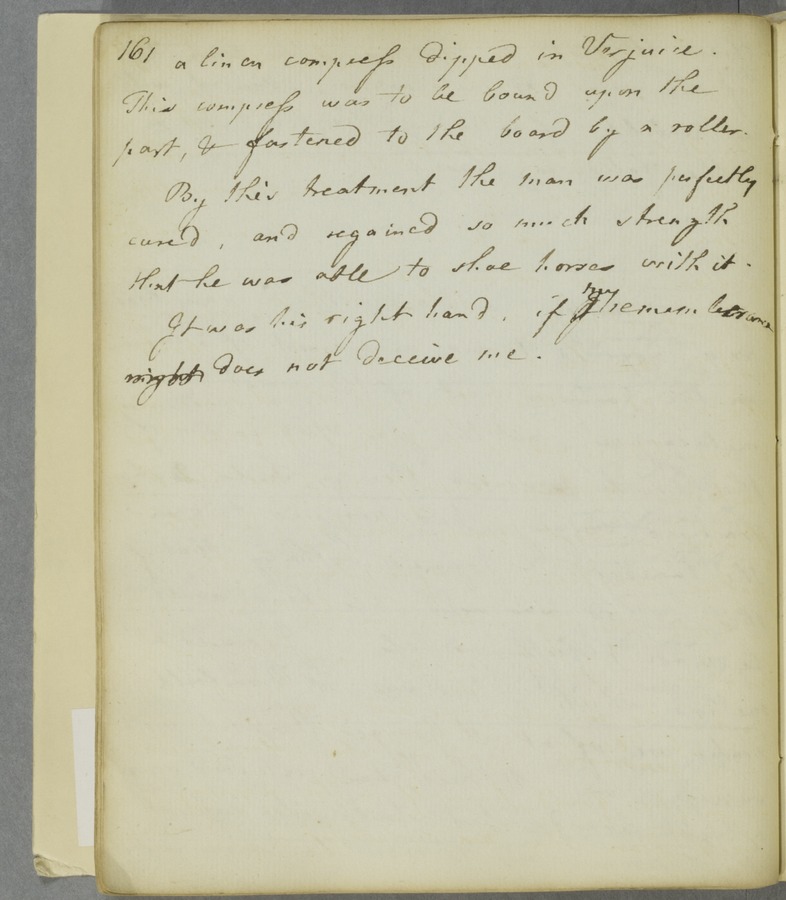 161 a linen compress dipped in Verjuice.
This compress was to be bound upon the
part, & fastened to the board by a roller.
By this treatment the man was perfectly
cured, and regained so much strength
that he was able to shoe horses with it.
It was his right hand, if my remembrance
might does not deceive me.